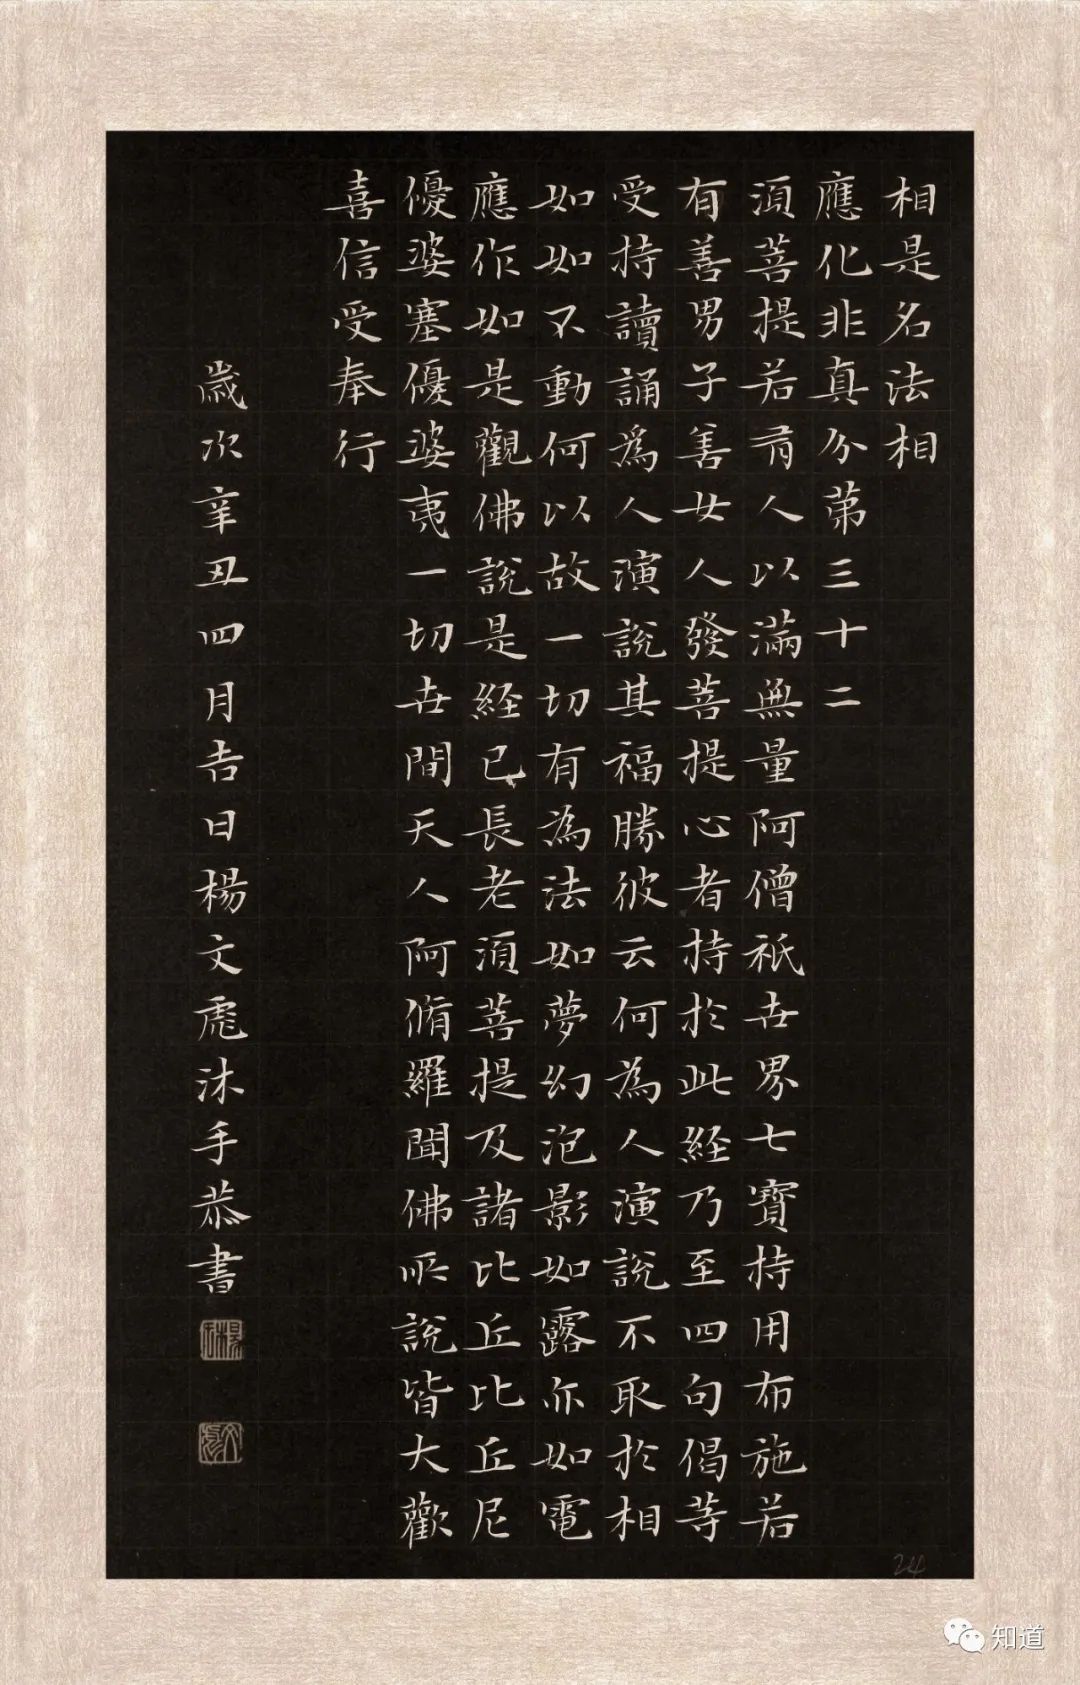 相是名法相
應化非真分第三十二
須菩提若有人以滿無量阿僧祇世界七寶持用布施若
有善男子善女人發菩提心者持於此經乃至四句偈等
受持讀誦為人演說其福勝彼云何為人演說不取於相
如如不動何以故一切有為法如夢幻泡影如露亦如電
應作如是觀佛說是經已長老須菩提及諸比丘比丘尼
優婆塞優婆夷一切世間天人阿脩羅聞佛所說皆大歡
喜信受奉行
歲次辛丑四月吉日楊文彪沐手恭書
24
知道